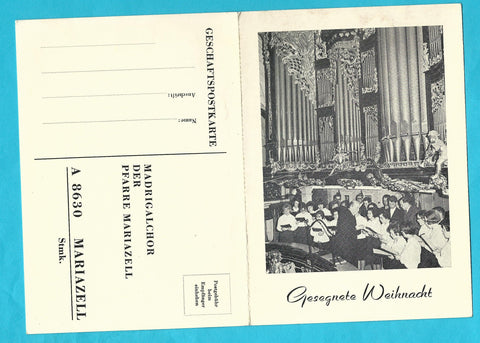 GESCHÄFTSPOSTKARTE
Name:
Anschrift:
MADRIGALCHOR
DER
PFARRE MARIAZELL
A 8630 MARIAZELL
Stmk.
Postgebühr
beim
Empfänger
einheben
Gesegnete Weihnacht